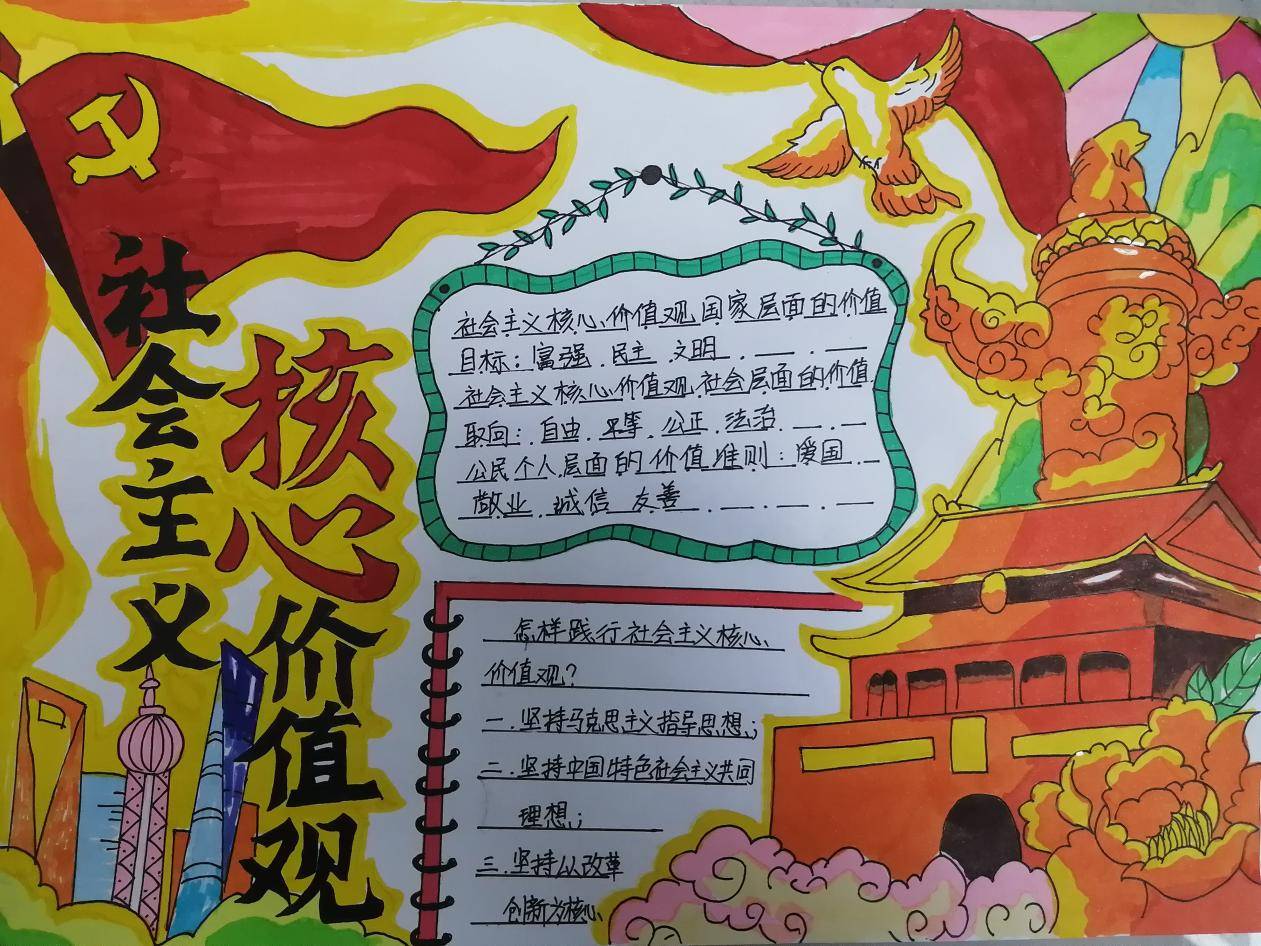 社会主义
核心
价值观
社会主义核心价值观国家层面的价值
目标：富强.民主.文明.
社会主义核心价值观社会层面的价值
取向：自由.平等.公正.法治.
公民个人层面的价值准则：爱国
敬业.诚信.友善
怎样践行社会主义核心
价值观？
一.坚持马克思主义指导思想；
二.坚持中国特色社会主义共同
理想；
三.坚持以改革
创新为核心